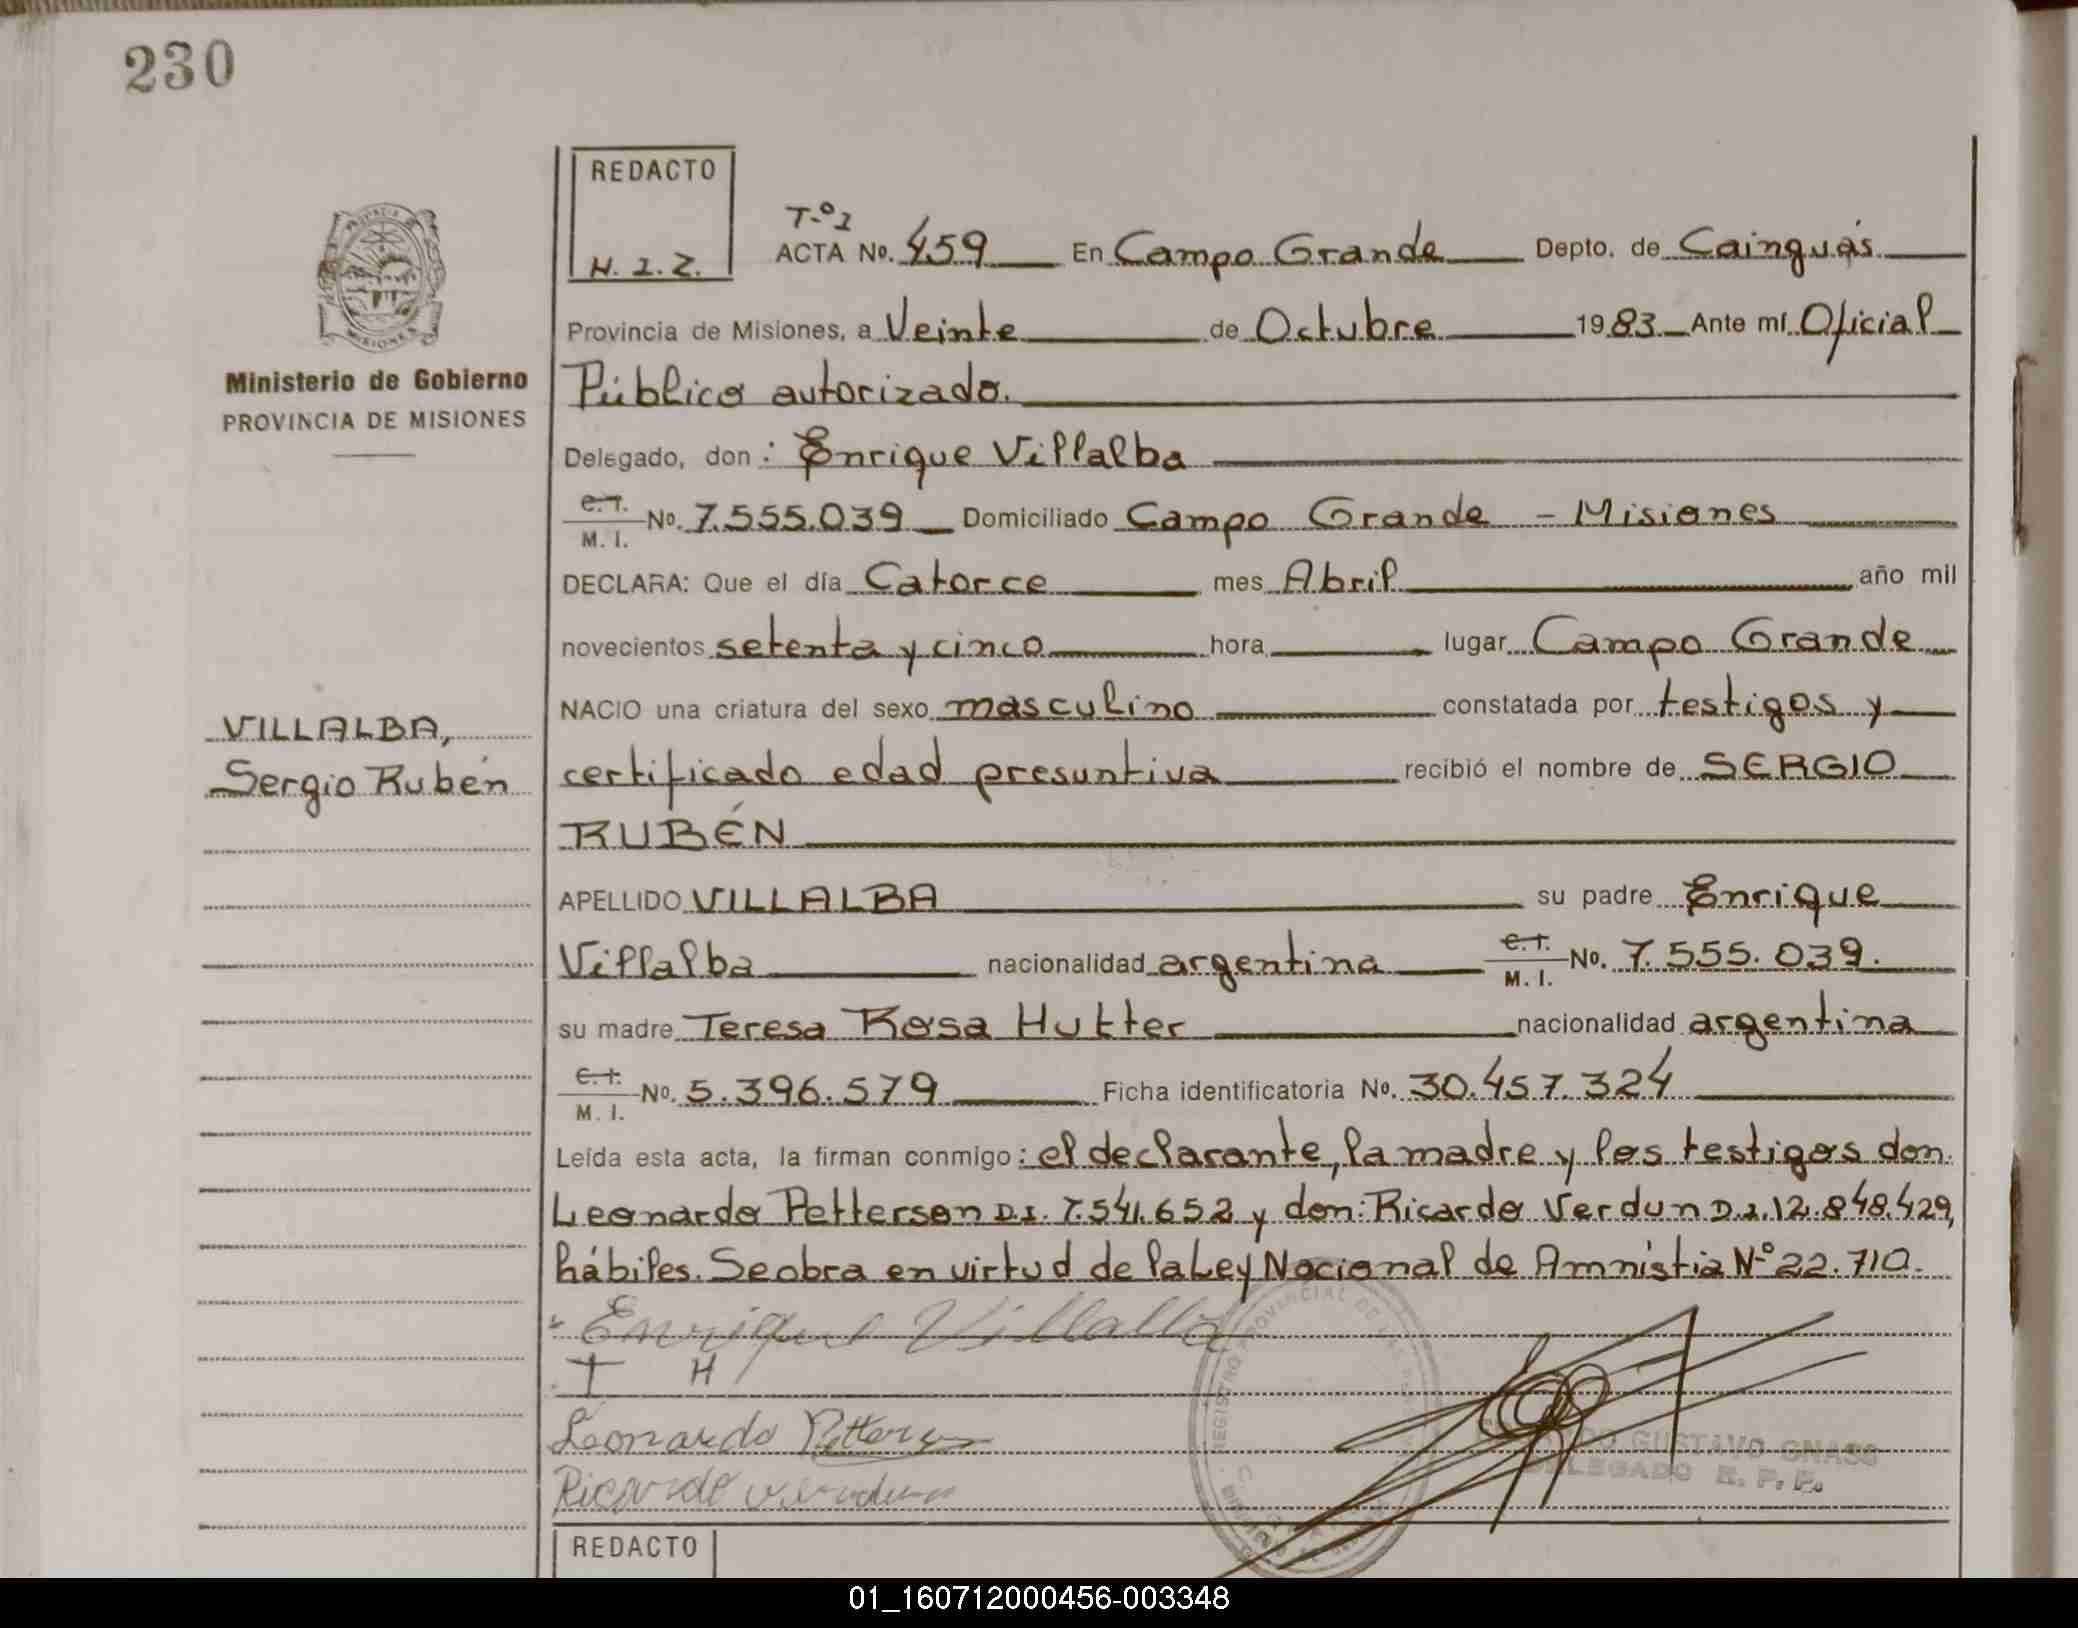 230
REDACTO
H. I. Z.
T-º1
ACTA No. 459 En Campo Grande Depto. de Cainguás
Provincia de Misiones, a Veinte de Octubre 1983 Ante mí Oficial
Público autorizado.
Ministerio de Gobierno
PROVINCIA DE MISIONES
Delegado, don: Enrique Villalba
C.I. M. I. No. 7.555.039 Domiciliado Campo Grande - Misiones
DECLARA: Que el día Catorce mes Abril año mil
novecientos setenta y cinco hora lugar Campo Grande
NACIO una criatura del sexo masculino constatada por testigos y
VILLALBA,
Sergio Rubén
certificado edad presuntiva recibió el nombre de SERGIO
RUBÉN
APELLIDO VILLALBA su padre Enrique
Villalba nacionalidad argentina C.I. M. I. No. 7.555.039.
su madre Teresa Rosa Hutter nacionalidad argentina
C.I. M. I. No. 5.396.579 Ficha identificatoria No. 30.457.324
Leída esta acta, la firman conmigo: el declarante, la madre y los testigos don
Leonardo Petterson D.I. 7.541.652 y don: Ricardo Verdun D.I. 12.848.429,
hábiles. Se obra en virtud de la Ley Nacional de Amnistia Nº 22.710.
Enrique Villalba
T H
Leonardo Petterson
Ricardo verdun
REGISTRO PROVINCIAL DE LAS
GUSTAVO GNASS
DELEGADO R. P. P.
REDACTO
01_160712000456-003348